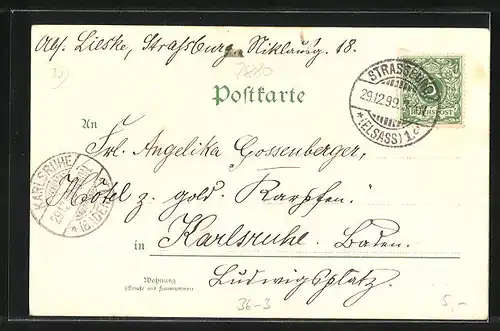 Abs. Lieske, Straßburg, Niklausg. 18.
7880
Postkarte
STRASSBURG
29.12.99.
*(ELSASS) 1.
REICHSPOST
An
Frl. Angelika Gossenberger,
Hotel z. gold. Karpfen.
KARLSRUHE
in Karlsruhe. Baden.
Wohnung
(Straße und Hausnummer)
Ludwigsplatz.
36-3
5,-